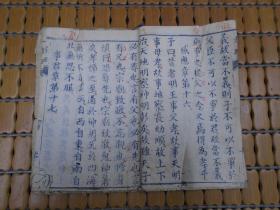 義故當不義則子不可以不爭於
父臣不可以不爭於君故當不義
則爭之從父之令又焉得為孝乎
感應章第十六
子曰昔者明王事父孝故事天明
事母孝故事地察長幼順故上下
治天地明察神明彰矣故雖天子
必有尊也言有父也必有先也言
有兄也宗廟致敬不忘親也修身
慎行恐辱先也宗廟致敬鬼神著
矣孝悌之至通於神明光於四海
無所不通詩云自西自東自南自
北無思不服
事君章第十七